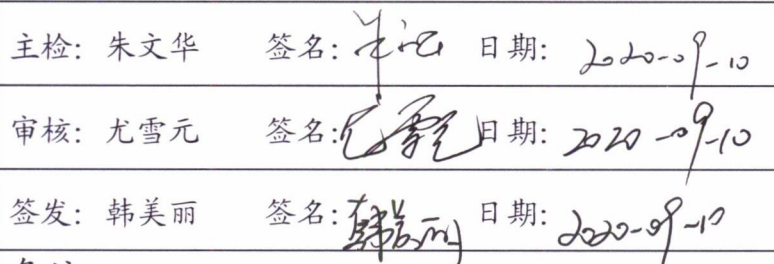 主检: 朱文华 签名: 日期: 2020-09-10
审核: 尤雪元 签名: 尤雪元 日期: 2020-09-10
签发: 韩美丽 签名: 韩美丽 日期: 2020-09-10